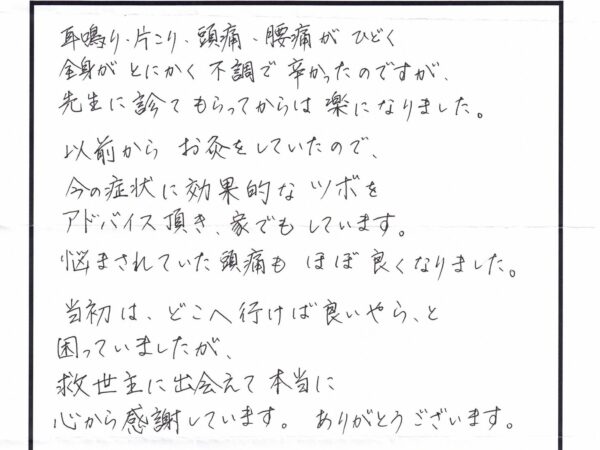 耳鳴り、片こり、頭痛、腰痛が ひどく
全身が とにかく 不調で 辛かったのですが、
先生に診て もらってからは 楽になりました。
以前から お灸をしていたので、
今の症状に効果的な ツボを
アドバイス頂き、家でも しています。
悩まされていた頭痛も ほぼ 良くなりました。
当初は、どこへ行けば良いやら、と
困っていましたが、
救世主に出会えて 本当に
心から感謝しています。 ありがとうございます。